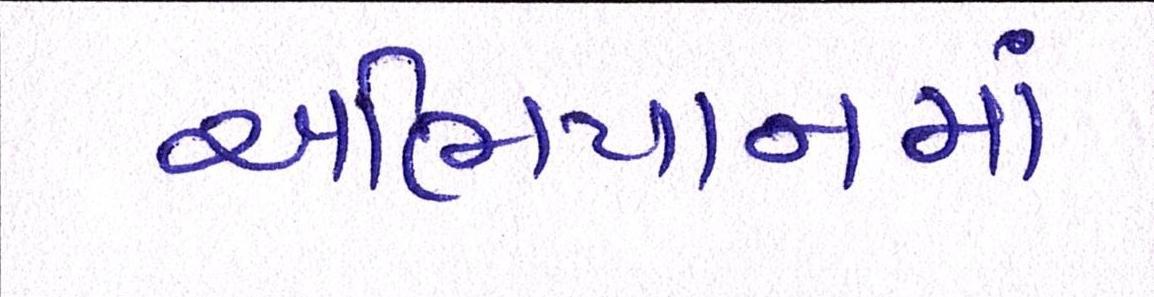 અભિયાનમાં